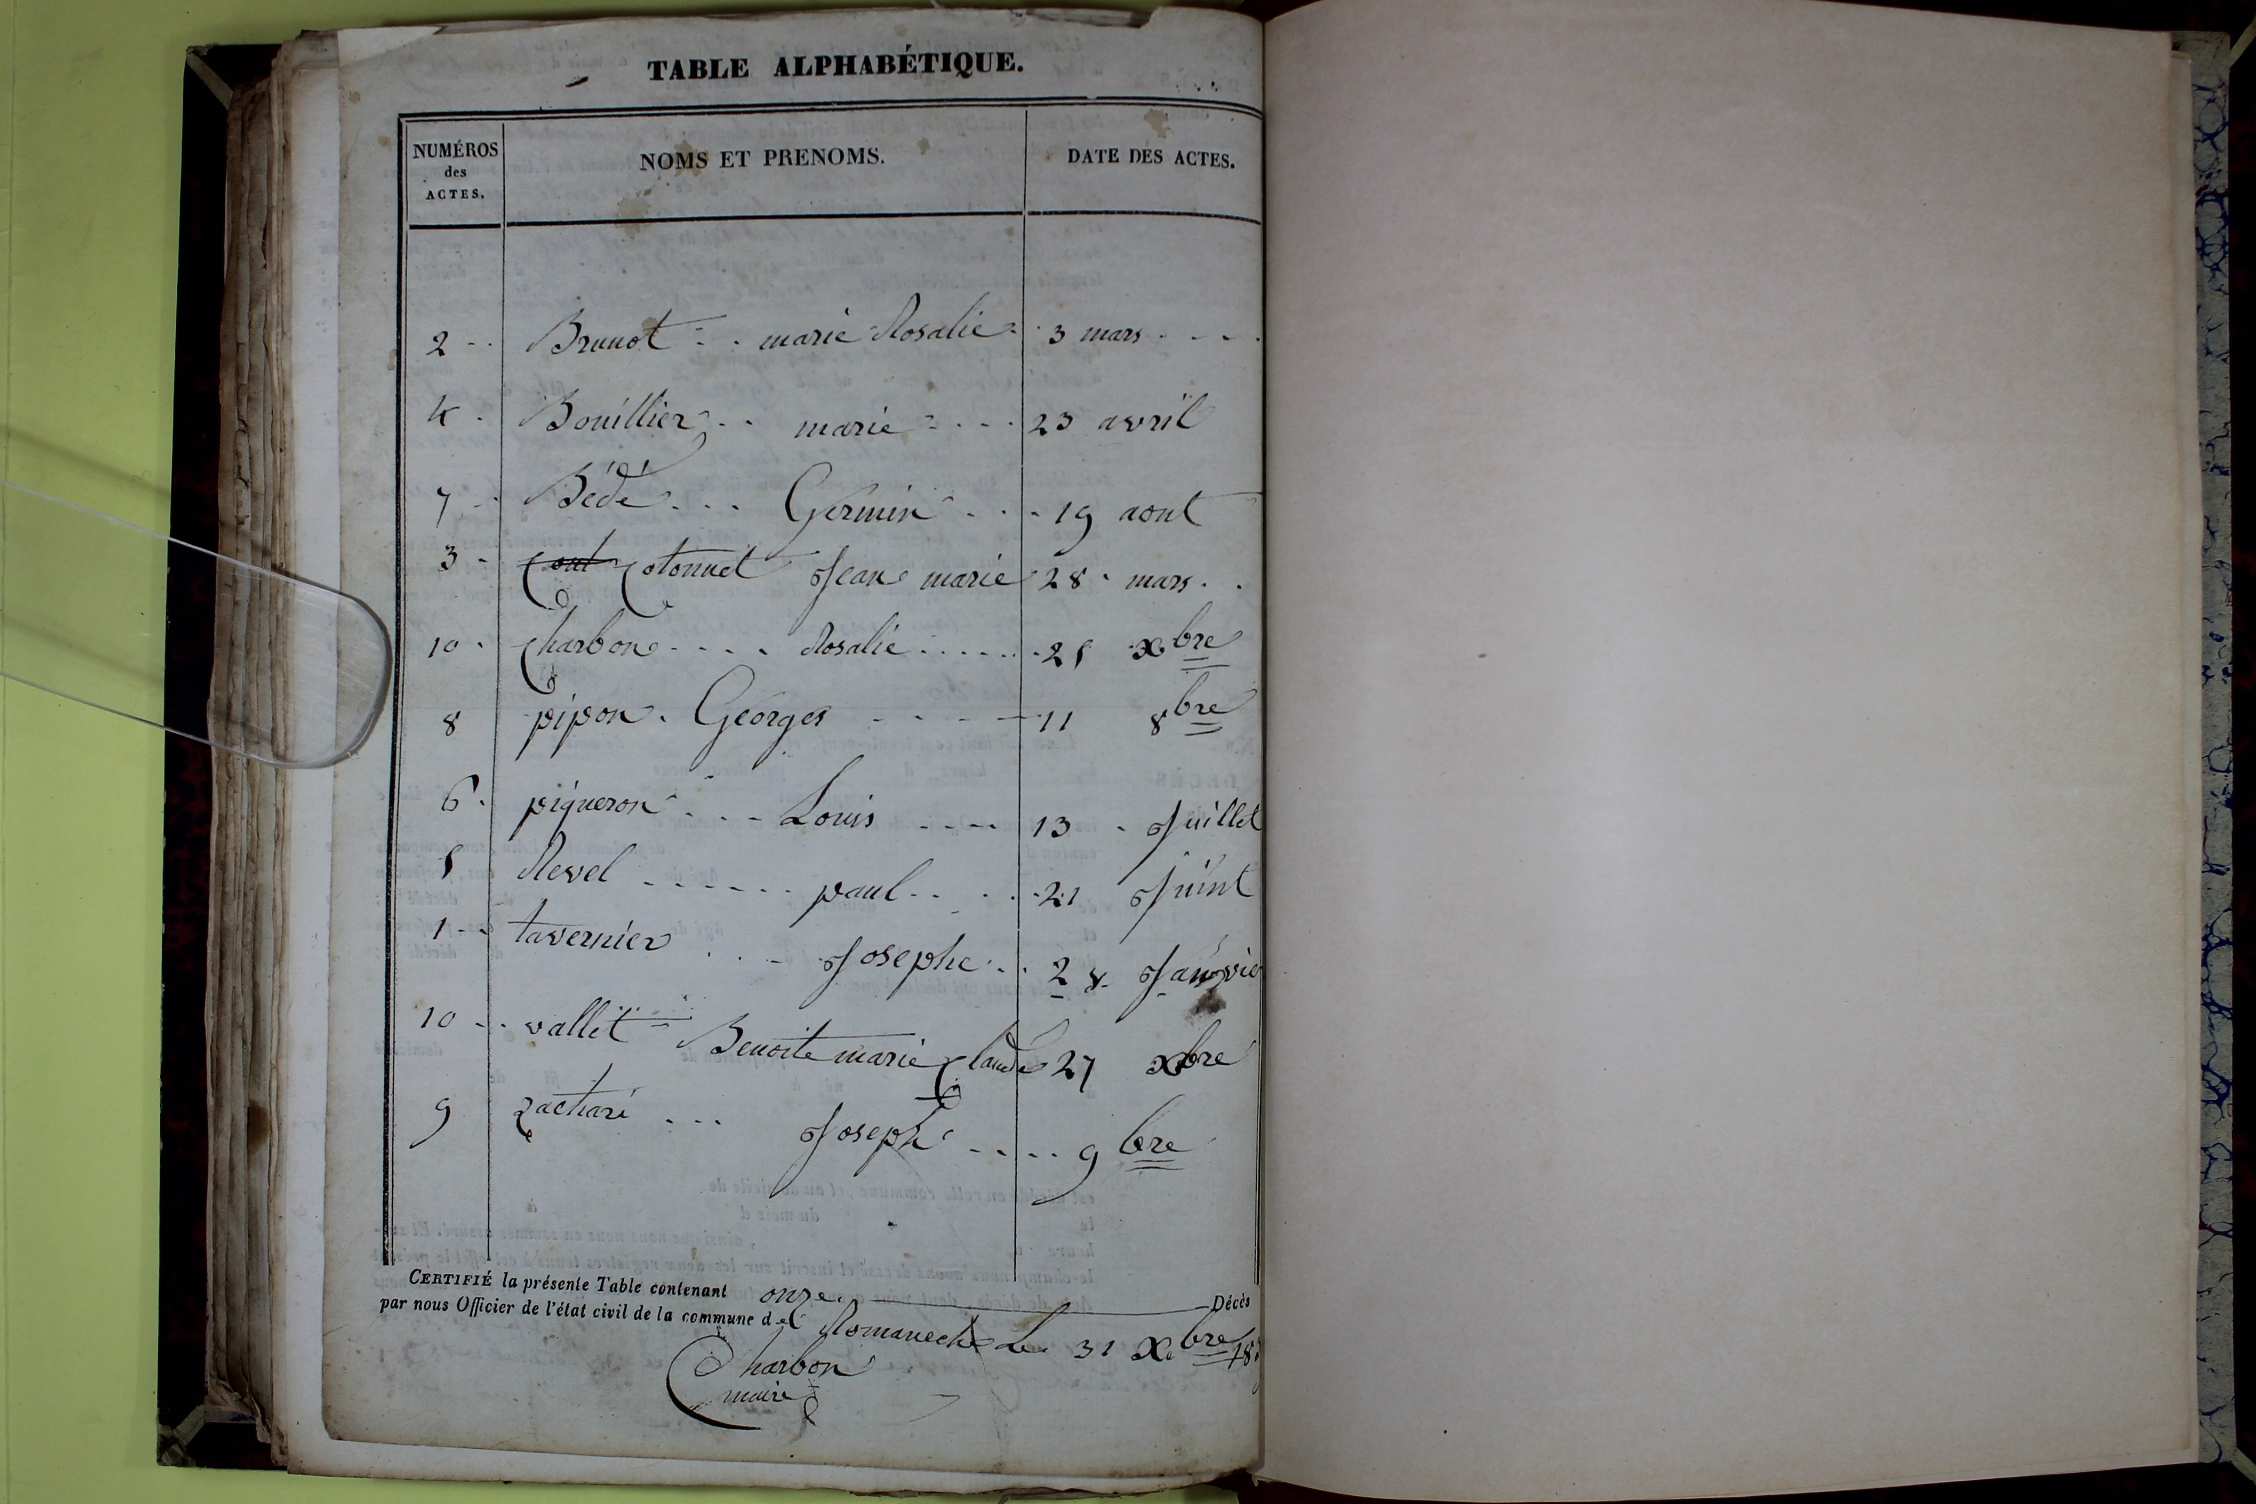 TABLE ALPHABÉTIQUE.
NUMÉROS des ACTES. NOMS ET PRENOMS. DATE DES ACTES.
2 - . Brunot - . marie Rosalie . 3 mars . - - .
4 . Bouillier . . marie - . . . 23 avril
7 . . Bédé . . . Germin . . . 19 aout
3 - Cout Cotonnet Jean marie 28 . mars . .
10 . Charbon . . . . Rosalie . . . . . . 25 xbre
8 pipon . Georges - - - - 11 8bre
6 . pigneron . . . - Louis . - - - 13 . Juillet
5 Revel . - - - - . . paul . . . . . 21 Juint
1 - . tavernier . . - Josephe . . 28 Janvier
10 - . vallet - Benoite marie Claude 27 xbre
9 zacharé . . . Joseph . . . . . 9bre
CERTIFIÉ la présente Table contenant onze Décès
par nous Officier de l'état civil de la commune de Romaneche Le 31 Xbre
Charbon
maire